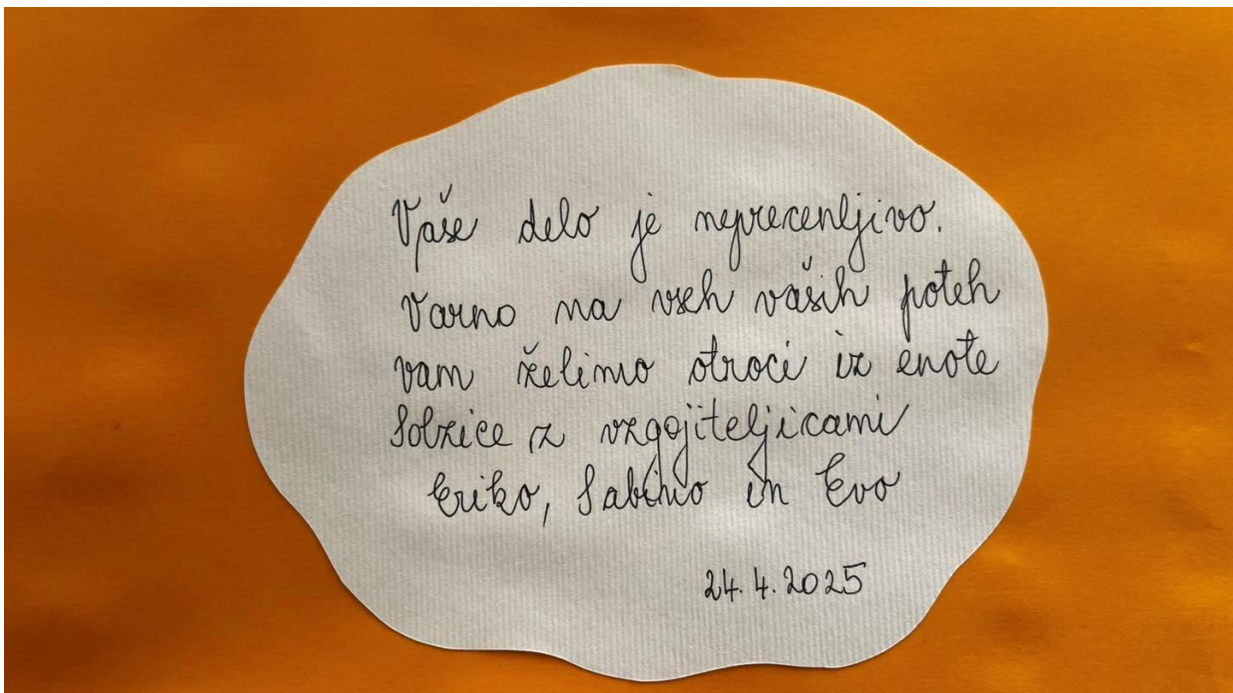 Vaše delo je neprecenljivo.
Varno na vseh vaših poteh
vam želimo otroci iz enote
Solzice z vzgojiteljicami
Eriko, Sabino in Evo
24. 4. 2025